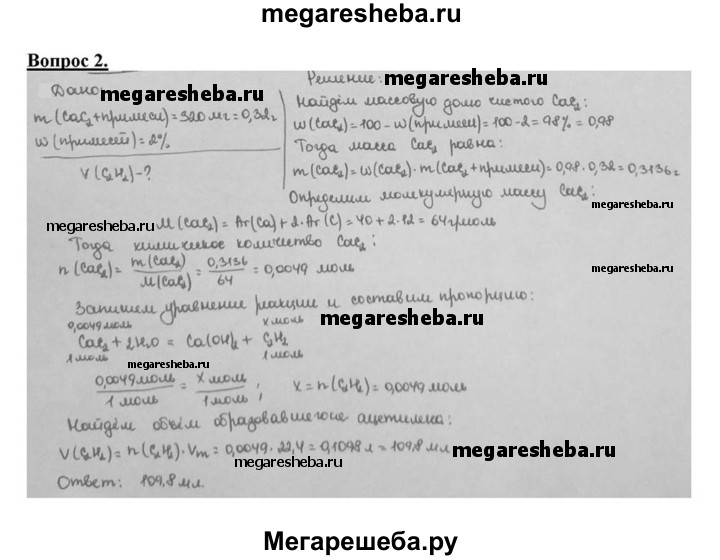 megaresheba.ru
Вопрос 2.
Дано:
megaresheba.ru
m(CaC₂+примеси)=320мг=0,32г
w(примесей)=2%
V(C₂H₂)-?
Решение:
megaresheba.ru
Найдём массовую долю чистого CaC₂:
w(CaC₂)=100-w(примеси)=100-2=98%=0,98
Тогда масса CaC₂ равна:
m(CaC₂)=w(CaC₂)·m(CaC₂+примеси)=0,98·0,32=0,3136г
Определим молекулярную массу CaC₂:
megaresheba.ru
megaresheba.ru
M(CaC₂)=Ar(Ca)+2·Ar(C)=40+2·12=64г/моль
Тогда химическое количество CaC₂:
n(CaC₂)=m(CaC₂)/M(CaC₂)=0,3136/64=0,0049 моль
megaresheba.ru
Запишем уравнение реакции и составим пропорцию:
0,0049моль x моль
megaresheba.ru
CaC₂+2H₂O=Ca(OH)₂+C₂H₂
1 моль 1 моль
megaresheba.ru
0,0049моль/1 моль=x моль/1 моль; x=n(C₂H₂)=0,0049моль
Найдём объём образовавшегося ацетилена:
V(C₂H₂)=n(C₂H₂)·Vm=0,0049·22,4=0,1098л=109,8мл
megaresheba.ru
megaresheba.ru
Ответ: 109,8мл.
Мегарешеба.ру